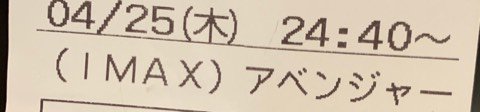 04/25(木) 24:40～
(IMAX) アベンジャー